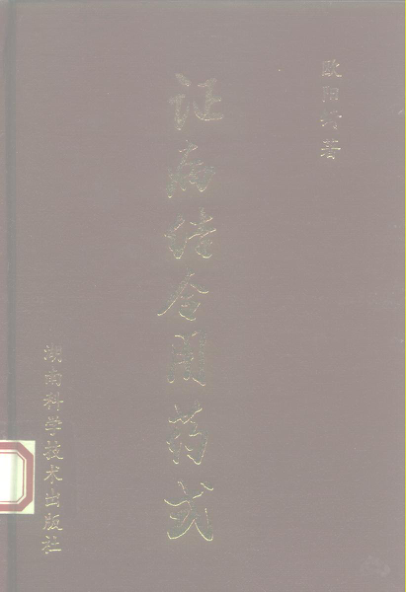 欧阳锜著
证病结合用药式
湖南科学技术出版社